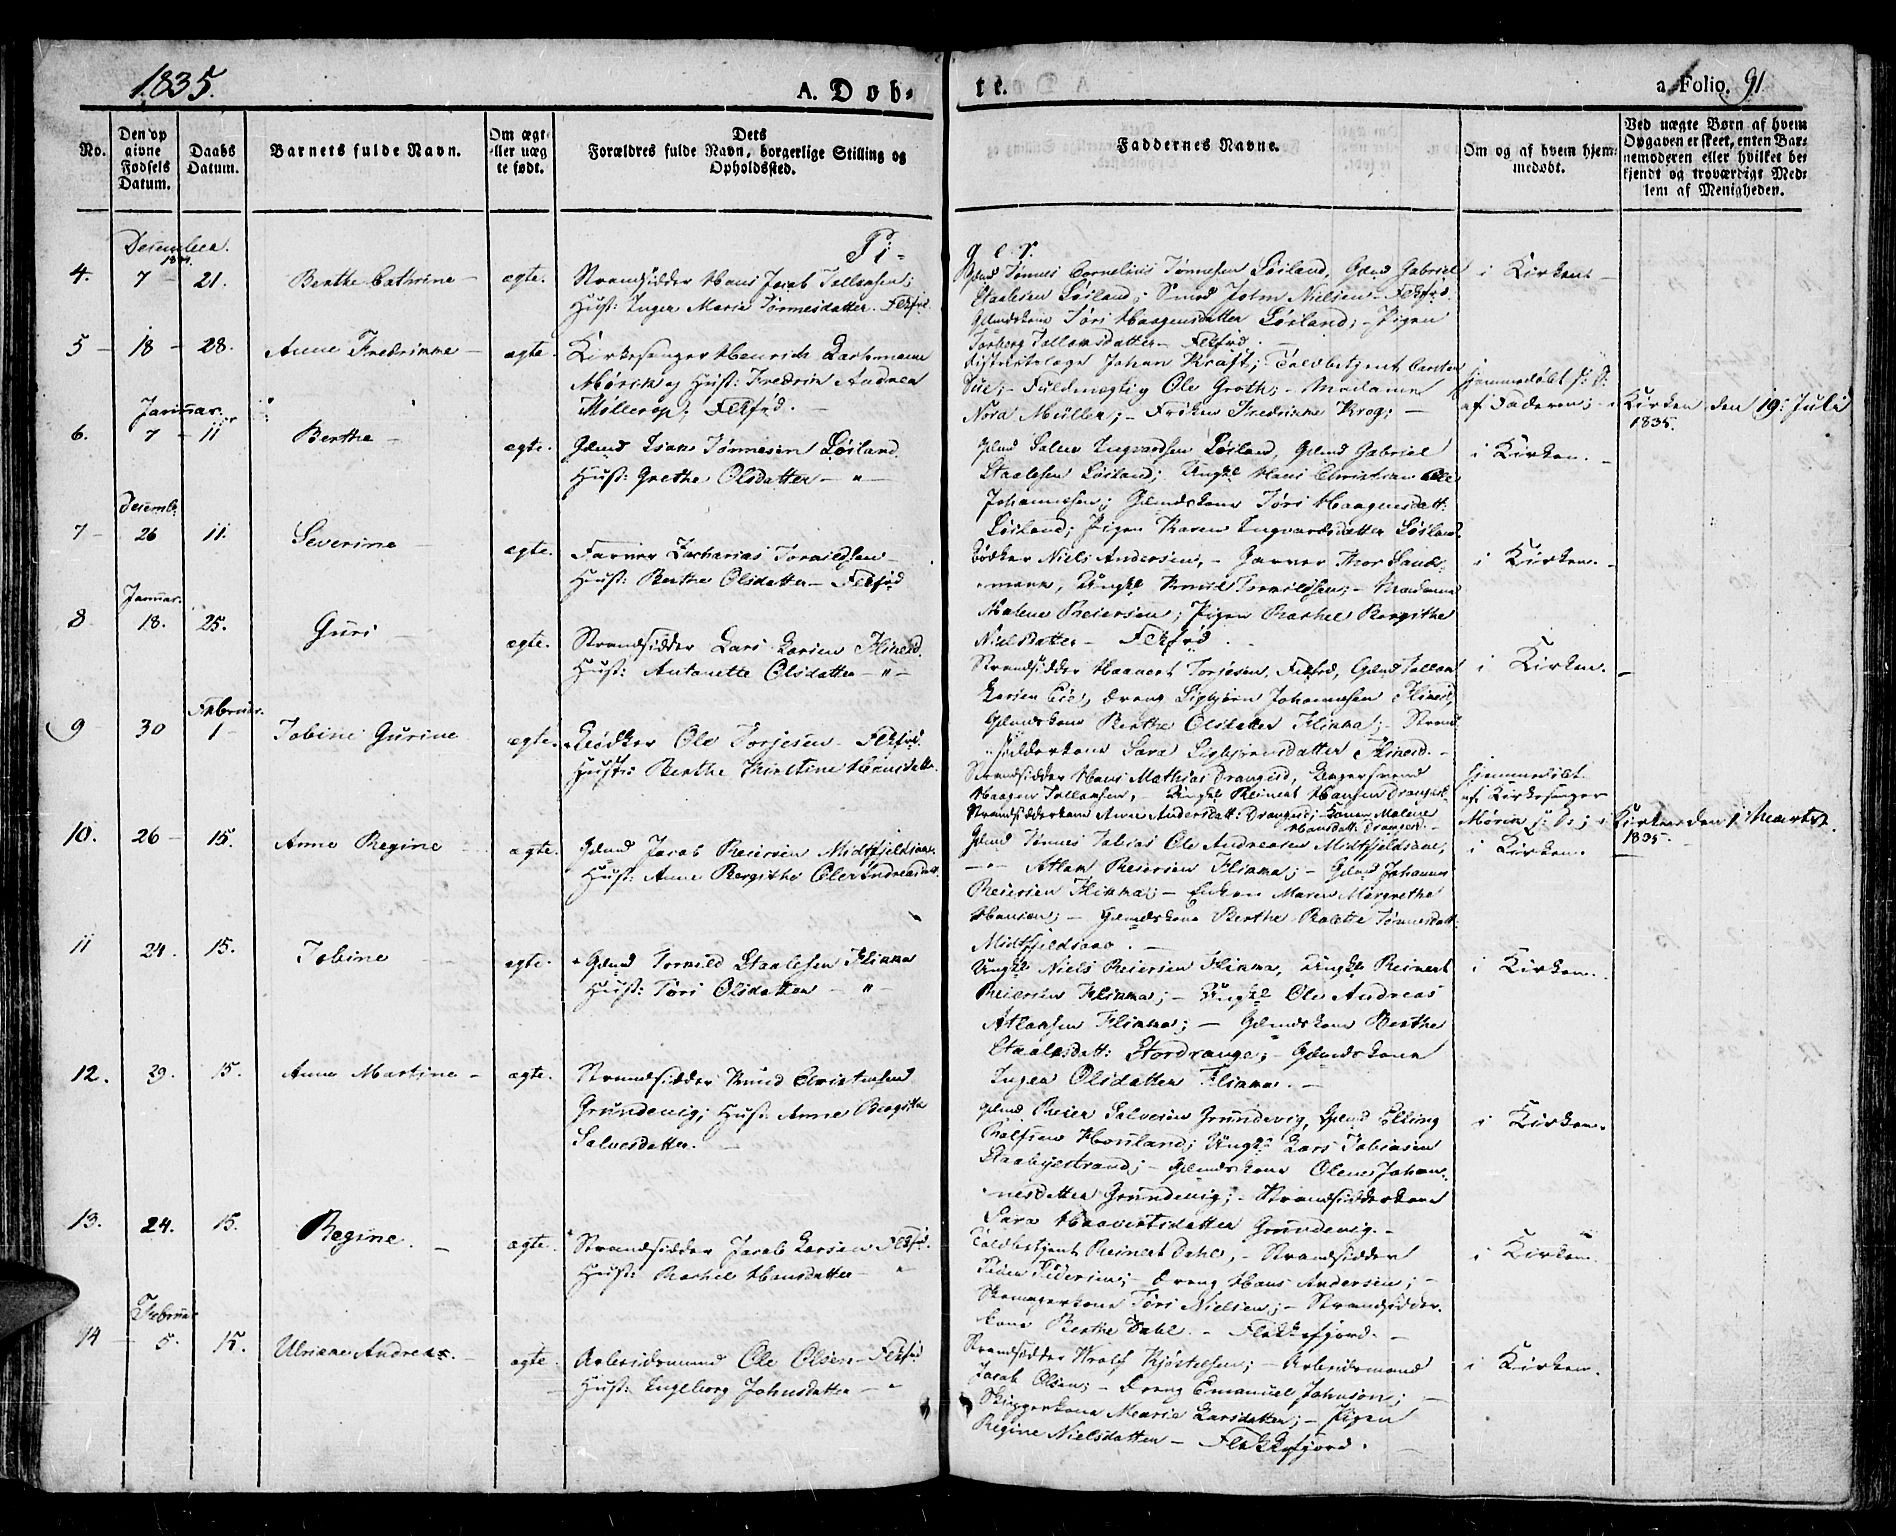 1835.
A. Døb-
te.
a. Folio. 91
No.
Den op
givne
Fødsels
Datum.
Daabs
Datum.
Barnets fulde Navn.
Om ægt-
eller uæg
te født.
Dets
Forældres fulde Navn, borgerlige Stilling og
Opholdssted.
Faddernes Navne.
Om og af hvem hjem-
medøbt.
Ved uægte Børn af hvem
Opgaven er skeet, enten Bar-
nemoderen eller hvilket be-
kjendt og troværdigt Med-
lem af Menigheden.
Pi-
ger.
Desember.
4. 7 - 21. Berthe Cathrine - ægte. Strandsidder Hans Jacob Tallaksen;
Hust: Inger Maria Tønnesdatter. Flkfrd
Gdmd Tønnes Cornelius Tønnesen Løiland, Gdmd Gabriel
Staalesen Løiland; Smed John Nielsen - Flkfrd.
Gdmdskone Tøri Haagensdatter Løiland; - Pigen
Torborg Tallaksdatter - Flkfrd.
i Kirken -
5 - 18 - 28. Anne Fredrikke - ægte. Kirkesanger Henrich Lachmann
Mørk og Hust: Fredrikke Andrea
Møllerop. Flkfrd. -
Districtslæge Johan Kraft; Toldbetjent Carsten
Due; - Fuldmægtig Ole Groth; - Madame
Nora Müller; - Frøken Fredrikke Krog; -
hjemmedøbt
af Faderen; - i Kirken den 19: Juli
1835.
Januar.
6. 7 - 11 Berthe - ægte. Gdmd Isak Tønnesen Løiland.
Hust: Grethe Olsdatter - " -
Gdmd Salve Ingvardsen Løiland, Gdmd Gabriel
Staalesen Løiland; Ungkl Hans Christian Ole
Johannesen; Gdmdskone Tøri Haagensdatt:
Løiland; Pigen Karen Ingvardsdatter Løiland.
i Kirken. -
Desemb:
7 - 26 11. Severine - ægte. Farver Zacharias Torkildsen -
Hust: Berthe Olsdatter - Flkfrd
Bødker Niels Andersen, - Garver Thor Sand-
mann, Ungkl Knud Torkildsen; - Madame
Malene Reiersen; Pigen Rachel Bergithe
Nielsdatter - Flkfrd.
i Kirken. -
Januar.
8 18. 25. Guri - ægte. Strandsidder Lars Larsen Flikeid.
Hust: Antonette Olsdatter - " -
Strandsidder Haavert Torjesen, Flkfrd, Gdmd Tallak
Larsen Eie, Dreng Sigbjørn Johannesen Flikeid,
Gdmdskone Berthe Olsdatter Flikka; - Strand
sidderkone Sara Sigbjørnsdatter Flikeid. -
i Kirken. -
Februar.
9 30 1 - Tobine Gurine ægte. Bødker Ole Torjesen - Flkfrd.
Hust: Berthe Kirstine Hansdatter.
Strandsidder Hans Mathias Drangeid,
Haagen Tallaksen, - Ungkl Reinert Hansen Drangeid.
Strandsidderkone Anne Andersdatt: Drangeid; - Konen Malene
Hansdatt: Drangeid -
hjemmedøbt
af Kirkesanger
Mørk; i Kirken den 1 Marts
1835.
10. 26 - 15. Anne Regine - ægte. Gdmd Jacob Reiersen Midtfjeldsaae
Hust: Anne Bergithe Ole Andreasdatt.
Gdmd Tønnes Tobias Ole Andreasen Midtfjeldsaae,
- " - Atlak Reiersen Flikka; - Gdmd Johannes
Reiersen Flikka; - Enken Maren Margrethe
Hansen; - Gdmdskone Berthe Bolette Tønnesdatt:
Midtfjeldsaae. -
i Kirken.
11 24. 15. Tobine - ægte. Gdmd Torkild Staalesen Flikka
Hust: Tøri Olsdatter - " -
Ungkl Niels Reiersen Flikka, Ungkl Reinert
Reiersen Flikka; - Ungkl Ole Andreas
Atlaksen Flikka; - Gdmdskone Berthe
Staalesdatt: Stordrange; - Gdmdskone
Inger Olsdatter Flikka. -
i Kirken.
12. 29. 15. Anne Martine - ægte. Strandsidder Knud Christensen
Grundevig; Hust: Anne Bergithe
Salvesdatter. -
Gdmd Reier Salvesen Grundevig, Gdmd Elling
Rolfsen Houland; Ungkl Lars Tobiasen
Staabyestrand; - Gdmdskone Olene Johan-
nesdatter Grundevig; - Strandsidderkone
Sara Haavertsdatter Grundevig. -
i Kirken.
13. 24. 15. Regine. - ægte. Strandsidder Jacob Larsen Flkfrd.
Hust: Rachel Hansdatter - "
Toldbetjent Reinert Dahl, - Strandsidder
Peder Pedersen; - Dreng Hans Andersen; -
Skomagerkone Tøri Nielsen; - Strandsidder-
kone Berthe Dahl. - Flekkefjord. -
i Kirken.
Februar
14 - 5. 15. Ulriane Andrea. - ægte. Arbeidsmand Ole Olsen - Flkfrd
Hust: Ingeborg Johnsdatter - "
Strandsidder Wrolf Kjøstelsen; - Arbeidsmand
Jacob Olsen; - Dreng Emanuel Johnson; -
Skippperkone Marie Larsdatter; - Pigen
Regine Nielsdatter - Flekkefjord.
i Kirken.